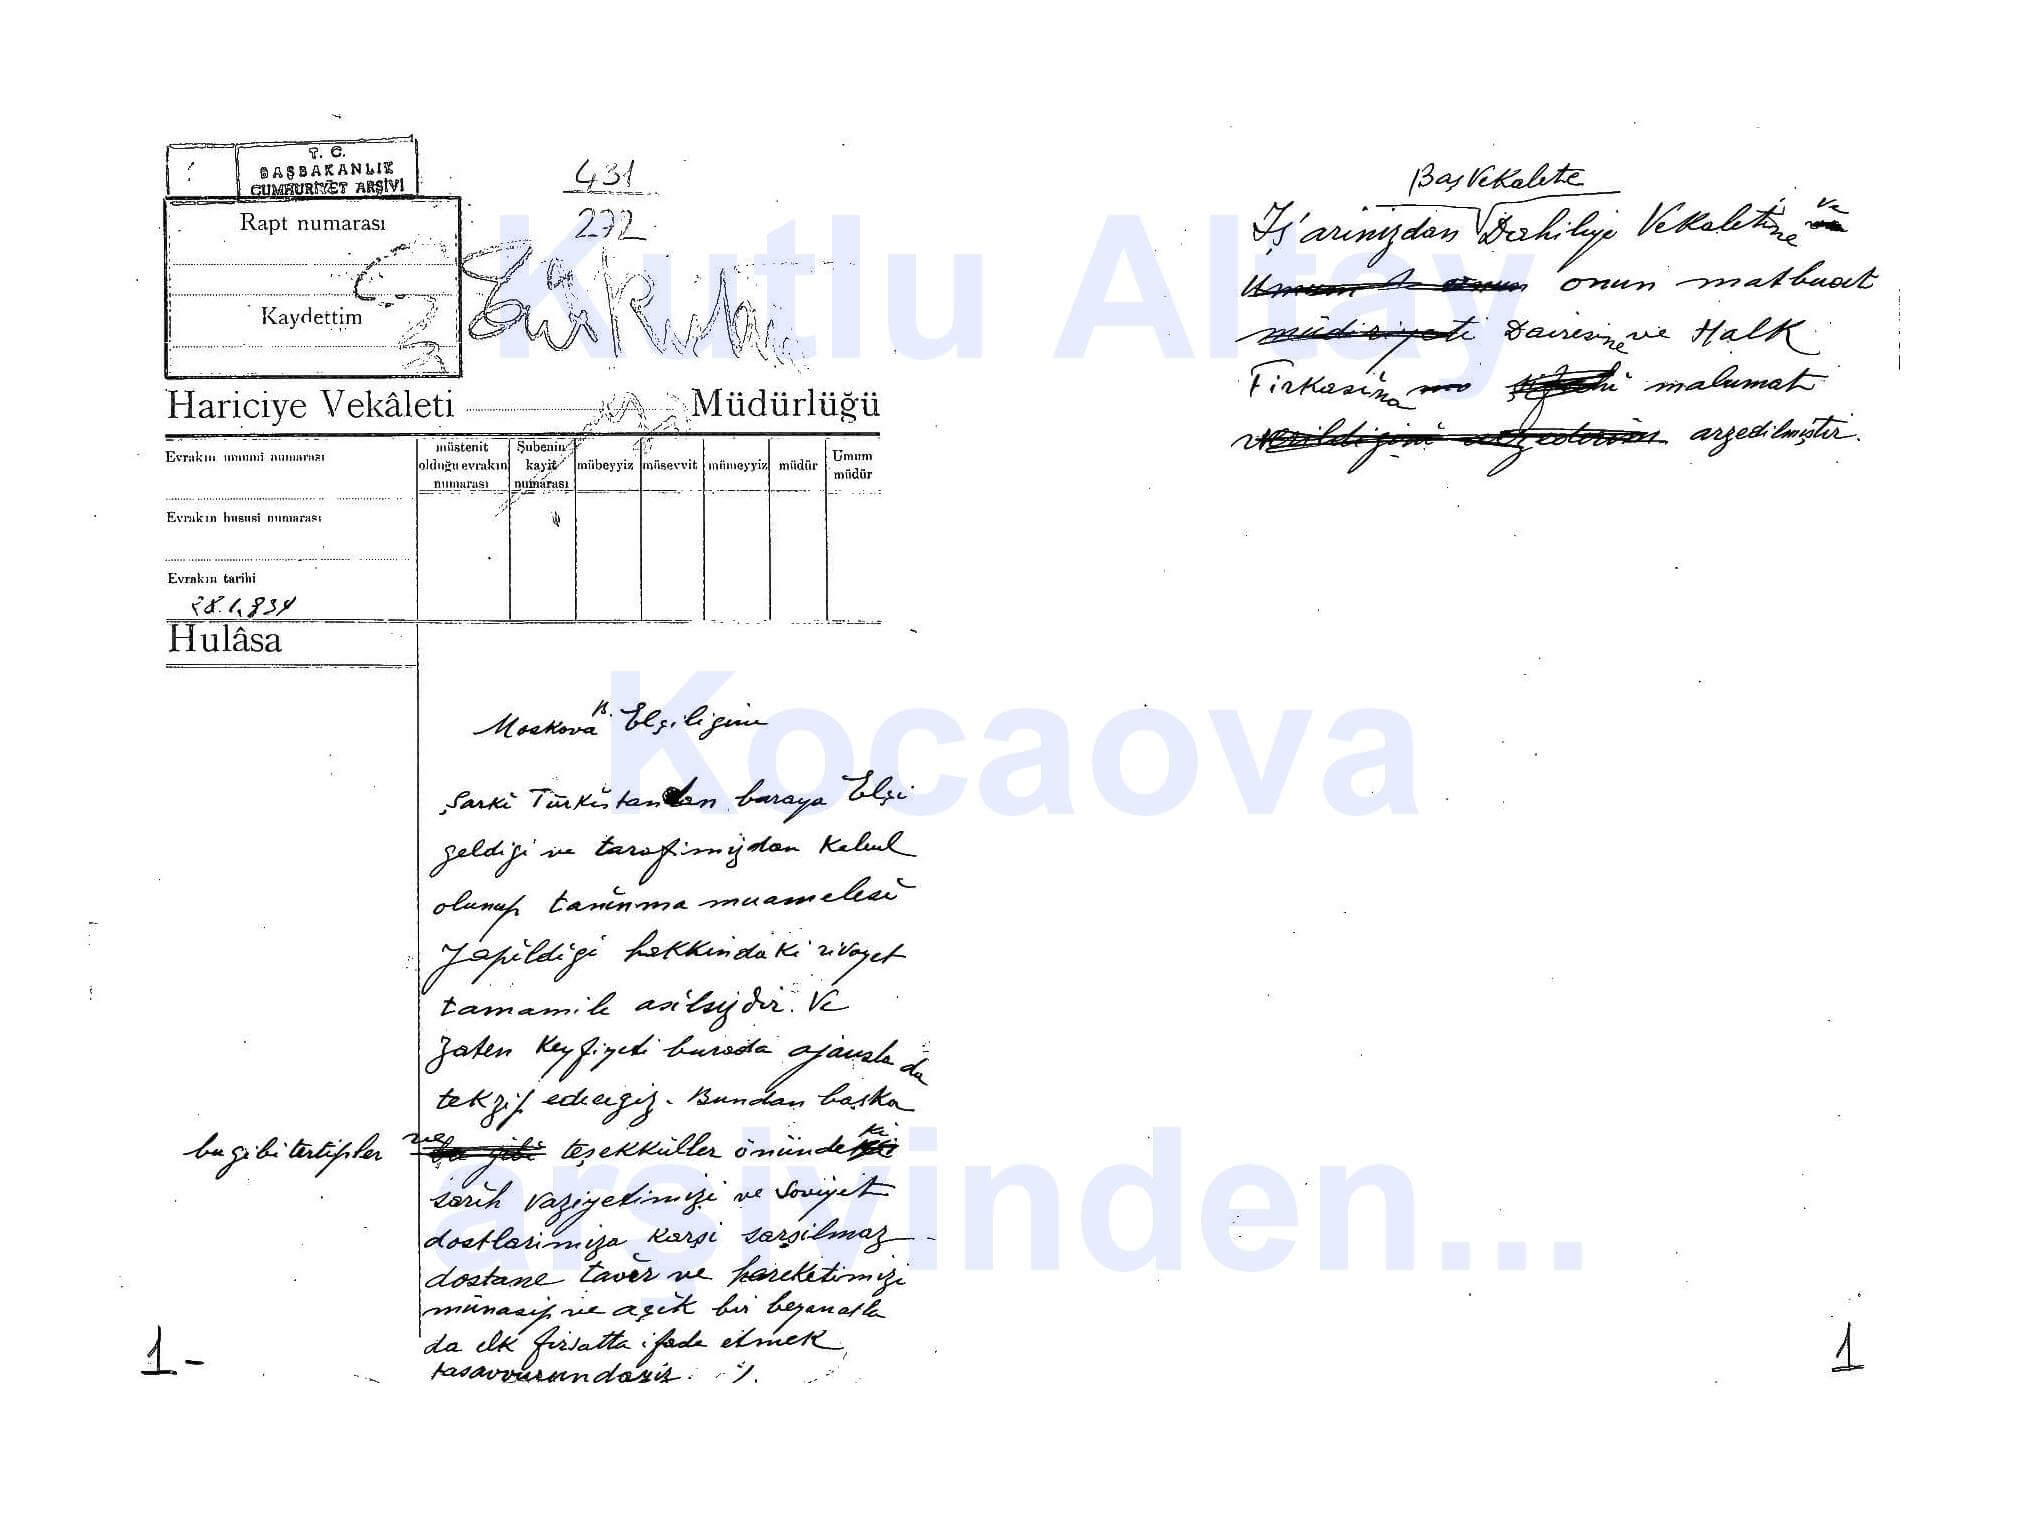 T. C.
BAŞBAKANLIK
CUMHURİYET ARŞİVİ
431
272
Rapt numarası
Kaydettim
Hariciye Vekâleti Müdürlüğü
Evrakın umumî numarası
müstenit olduğu evrakın numarası
Şubenin kayit numarası
mübeyyiz
müsevvit
mümeyyiz
müdür
Umum müdür
Evrakın hususî numarası
Evrakın tarihi
28.1.934
Hulâsa
Moskova B. Elçiliğine
Şarki Türkistandan buraya Elçi
geldiği ve tarafimizdan Kabul
olunup tanınma muamelesi
Yapildiği hakkindaki rivayet
tamamile asılsızdır. Ve
Zaten Keyfiyeti burada ajansla da
tekzip edeceğiz. Bundan başka
bu gibi tertipler ve bu gibi teşekküller önündeki
sarih vaziyetimizi ve Soviyet
dostlarimiza karşi sarsılmaz
dostane tavır ve hareketimizi
münasip ve açık bir beyanatla
da ilk firsatta ifade etmek
tasavvurundayiz. /.
1-
Baş Vekalete
İş'arinizdan Dahiliye Vekaletine ve
onun matbuat
müdiriyeti Dairesine ve Halk
Firkasina malumat
verildiğini arzederim arzedilmiştir.
1
Kutlu Altay
Kocaova
arşivinden...